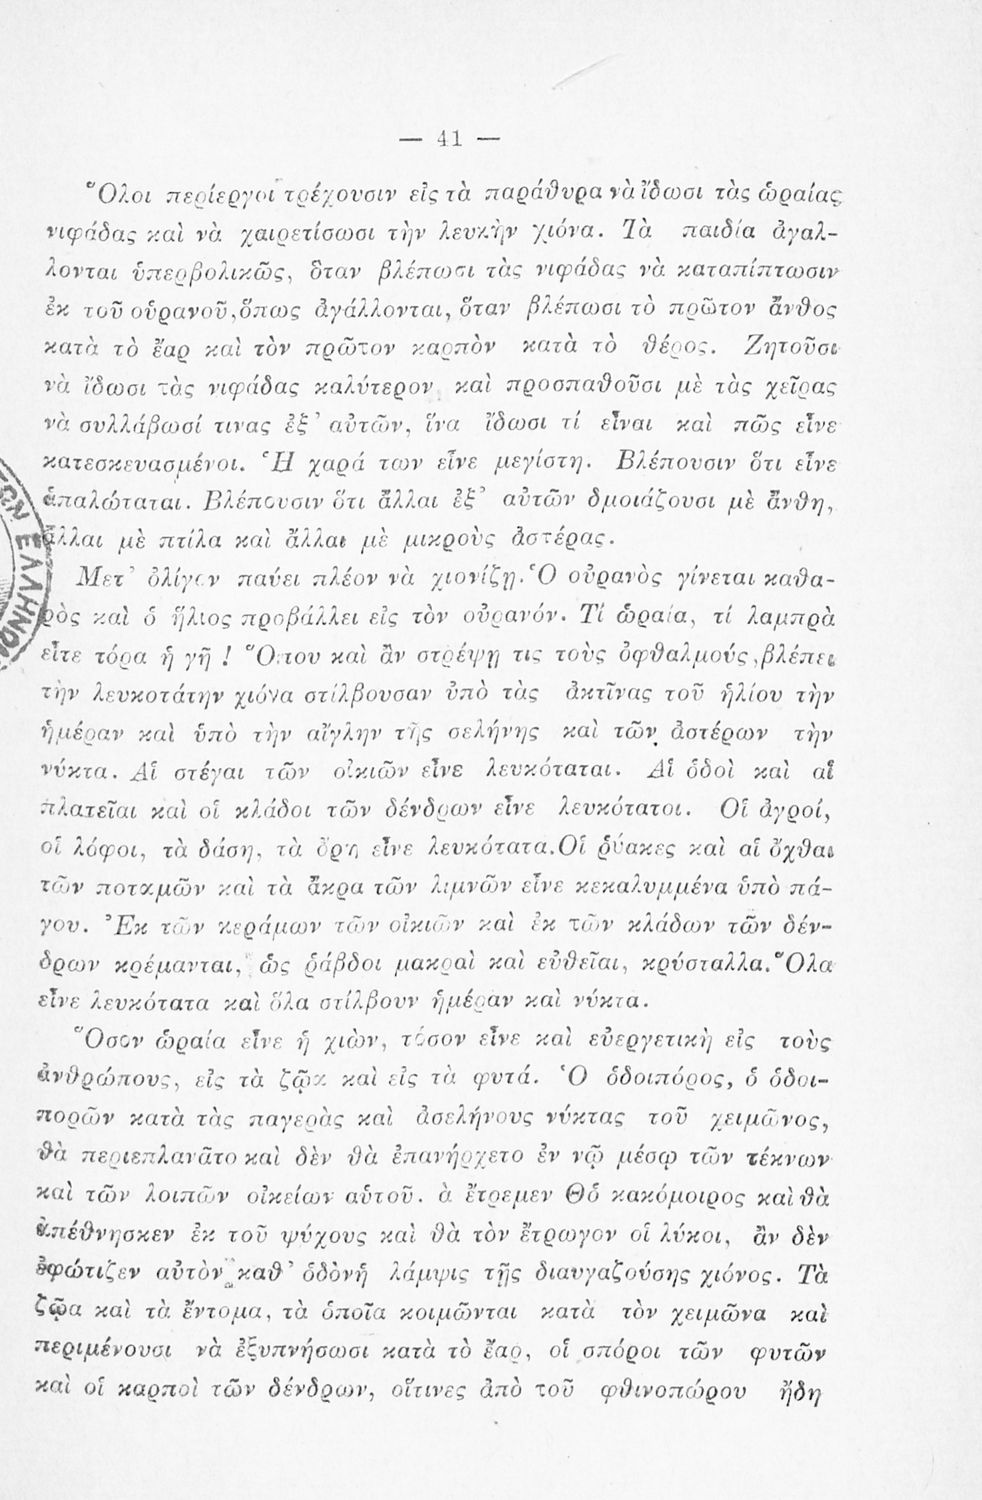 — 41 —
Ὅλοι περίεργοι τρέχουσιν εἰς τὰ παράθυρα νὰ ἴδωσι τὰς ὡραίας
νιφάδας καὶ νὰ χαιρετίσωσι τὴν λευκὴν χιόνα. Τὰ παιδία ἀγαλ-
λονται ὑπερβολικῶς, ὅταν βλέπωσι τὰς νιφάδας νὰ καταπίπτωσιν
ἐκ τοῦ οὐρανοῦ, ὅπως ἀγάλλονται, ὅταν βλέπωσι τὸ πρῶτον ἄνθος
κατὰ τὸ ἔαρ καὶ τὸν πρῶτον καρπὸν κατὰ τὸ θέρος. Ζητοῦσι
νὰ ἴδωσι τὰς νιφάδας καλύτερον καὶ προσπαθοῦσι μὲ τὰς χεῖρας
νὰ συλλάβωσί τινας ἐξ᾽ αὐτῶν, ἵνα ἴδωσι τί εἶναι καὶ πῶς εἶνε
κατεσκευασμένοι. Ἡ χαρά των εἶνε μεγίστη. Βλέπουσιν ὅτι εἶνε
ἁπαλώταται. Βλέπουσιν ὅτι ἄλλαι ἐξ᾽ αὐτῶν ὁμοιάζουσι μὲ ἄνθη,
ἄλλαι μὲ πτίλα καὶ ἄλλαι μὲ μικροὺς ἀστέρας.
Μετ᾽ ὀλίγον παύει πλέον νὰ χιονίζῃ. Ὁ οὐρανὸς γίνεται καθα-
ρὸς καὶ ὁ ἥλιος προβάλλει εἰς τὸν οὐρανόν. Τί ὡραία, τί λαμπρὰ
εἶτε τόρα ἡ γῆ! Ὅπου καὶ ἂν στρέψῃ τις τοὺς ὀφθαλμούς, βλέπει
τὴν λευκοτάτην χιόνα στίλβουσαν ὑπὸ τὰς ἀκτῖνας τοῦ ἡλίου τὴν
ἡμέραν καὶ ὑπὸ τὴν αἴγλην τῆς σελήνης καὶ τῶν ἀστέρων τὴν
νύκτα. Αἱ στέγαι τῶν οἰκιῶν εἶνε λευκόταται. Αἱ ὁδοὶ καὶ αἱ
πλατεῖαι καὶ οἱ κλάδοι τῶν δένδρων εἶνε λευκότατοι. Οἱ ἀγροί,
οἱ λόφοι, τὰ δάση, τὰ ὄρη εἶνε λευκότατα. Οἱ ῥύακες καὶ αἱ ὄχθαι
τῶν ποταμῶν καὶ τὰ ἄκρα τῶν λιμνῶν εἶνε κεκαλυμμένα ὑπὸ πά-
γου. Ἐκ τῶν κεράμων τῶν οἰκιῶν καὶ ἐκ τῶν κλάδων τῶν δέν-
δρων κρέμανται, ὡς ῥάβδοι μακραὶ καὶ εὐθεῖαι, κρύσταλλα. Ὅλα
εἶνε λευκότατα καὶ ὅλα στίλβουν ἡμέραν καὶ νύκτα.
Ὅσον ὡραία εἶνε ἡ χιὼν, τόσον εἶνε καὶ εὐεργετικὴ εἰς τοὺς
ἀνθρώπους, εἰς τὰ ζῷα καὶ εἰς τὰ φυτά. Ὁ ὁδοιπόρος, ὁ ὁδοι-
πορῶν κατὰ τὰς παγερὰς καὶ ἀσελήνους νύκτας τοῦ χειμῶνος,
θὰ περιεπλανᾶτο καὶ δὲν θὰ ἐπανήρχετο ἐν νῷ μέσῳ τῶν τέκνων
καὶ τῶν λοιπῶν οἰκείων αὐτοῦ. ὰ ἔτρεμεν Θὁ κακόμοιρος καὶ θὰ
ἀπέθνησκεν ἐκ τοῦ ψύχους καὶ θὰ τὸν ἔτρωγον οἱ λύκοι, ἂν δὲν
ἐφώτιζεν αὐτὸν καθ᾽ ὁδὸνἡ λάμψις τῆς διαυγαζούσης χιόνος. Τὰ
ζῷα καὶ τὰ ἔντομα, τὰ ὁποῖα κοιμῶνται κατὰ τὸν χειμῶνα καὶ
περιμένουσι νὰ ἐξυπνήσωσι κατὰ τὸ ἔαρ, οἱ σπόροι τῶν φυτῶν
καὶ οἱ καρποὶ τῶν δένδρων, οἵτινες ἀπὸ τοῦ φθινοπώρου ἤδη